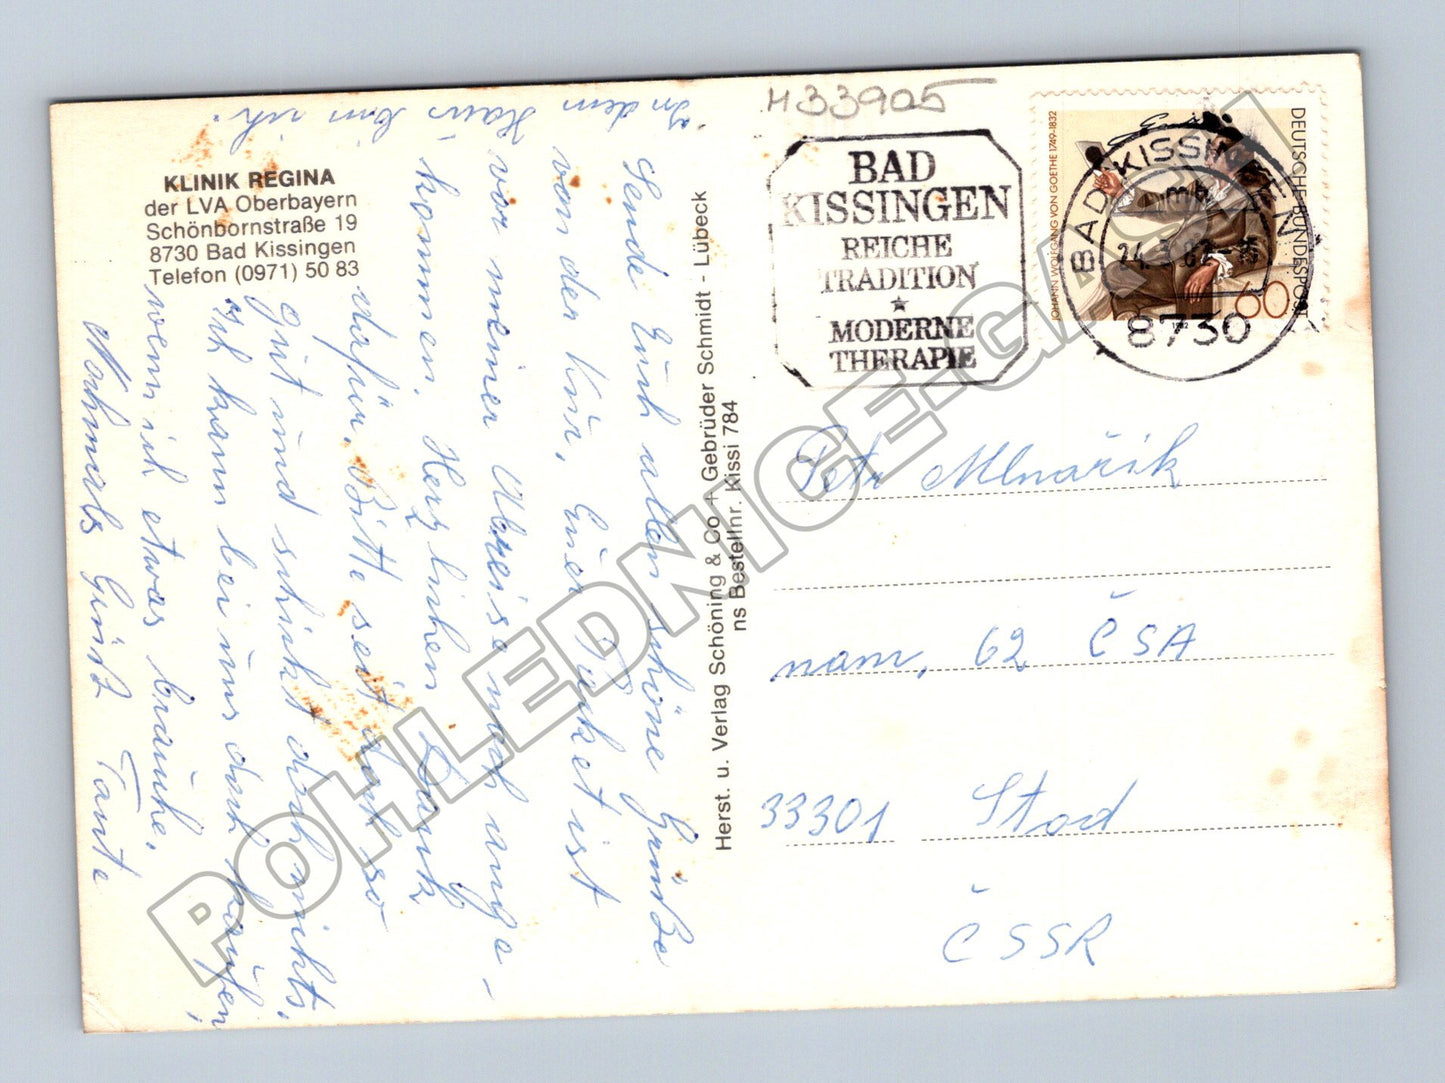 H33905
KLINIK REGINA
der LVA Oberbayern
Schönbornstraße 19
8730 Bad Kissingen
Telefon (0971) 50 83
In dem
Haus bin ich.
Sende Euch allen schöne Grüße
von der Kur, Euer Paket ist
vor meiner Abreise noch ange-
kommen. Herzlichen Dank
dafür. Bitte seit doch so
gut und schickt doch nichts,
Ich kann bei uns doch kaufen,
wenn ich etwas brauche.
Nochmals Gruß Tante
Herst. u. Verlag Schöning & Co + Gebrüder Schmidt - Lübeck
ns Bestellnr. Kissi 784
BAD
KISSINGEN
REICHE
TRADITION
★
MODERNE
THERAPIE
BAD KISSINGEN
mh
24.3.82
8730
JOHANN WOLFGANG VON GOETHE 1749-1832
DEUTSCHE BUNDESPOST
60
1982
Petr Mlnařík
nam, 62 ČSA
33301 Stod
ČSSR
POHLEDNICE-GASH